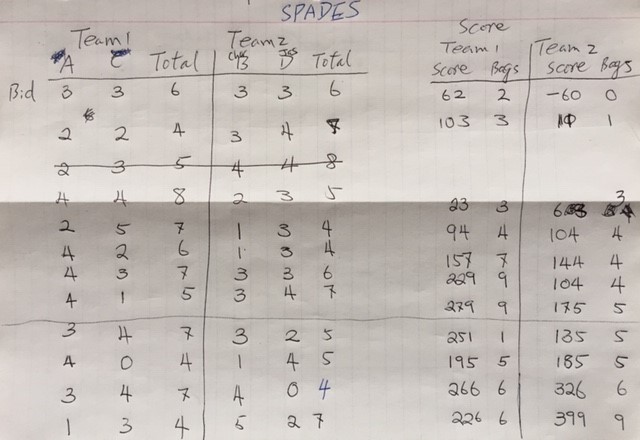 SPADES
Team 1 Team 2 Score
A C Total B D Total Team 1 Team 2
Score Bags Score Bags
Bid 3 3 6 3 3 6 62 2 -60 0
2 2 4 3 4 7 103 3 11 1
2 3 5 4 4 8
4 4 8 2 3 5 23 3 3
2 5 7 1 3 4 94 4 104 4
4 2 6 1 3 4 157 7 144 4
4 3 7 3 3 6 229 9 104 4
4 1 5 3 4 7 279 9 175 5
3 4 7 3 2 5 251 1 135 5
4 0 4 1 4 5 195 5 185 5
3 4 7 4 0 4 266 6 326 6
1 3 4 5 2 7 226 6 399 9